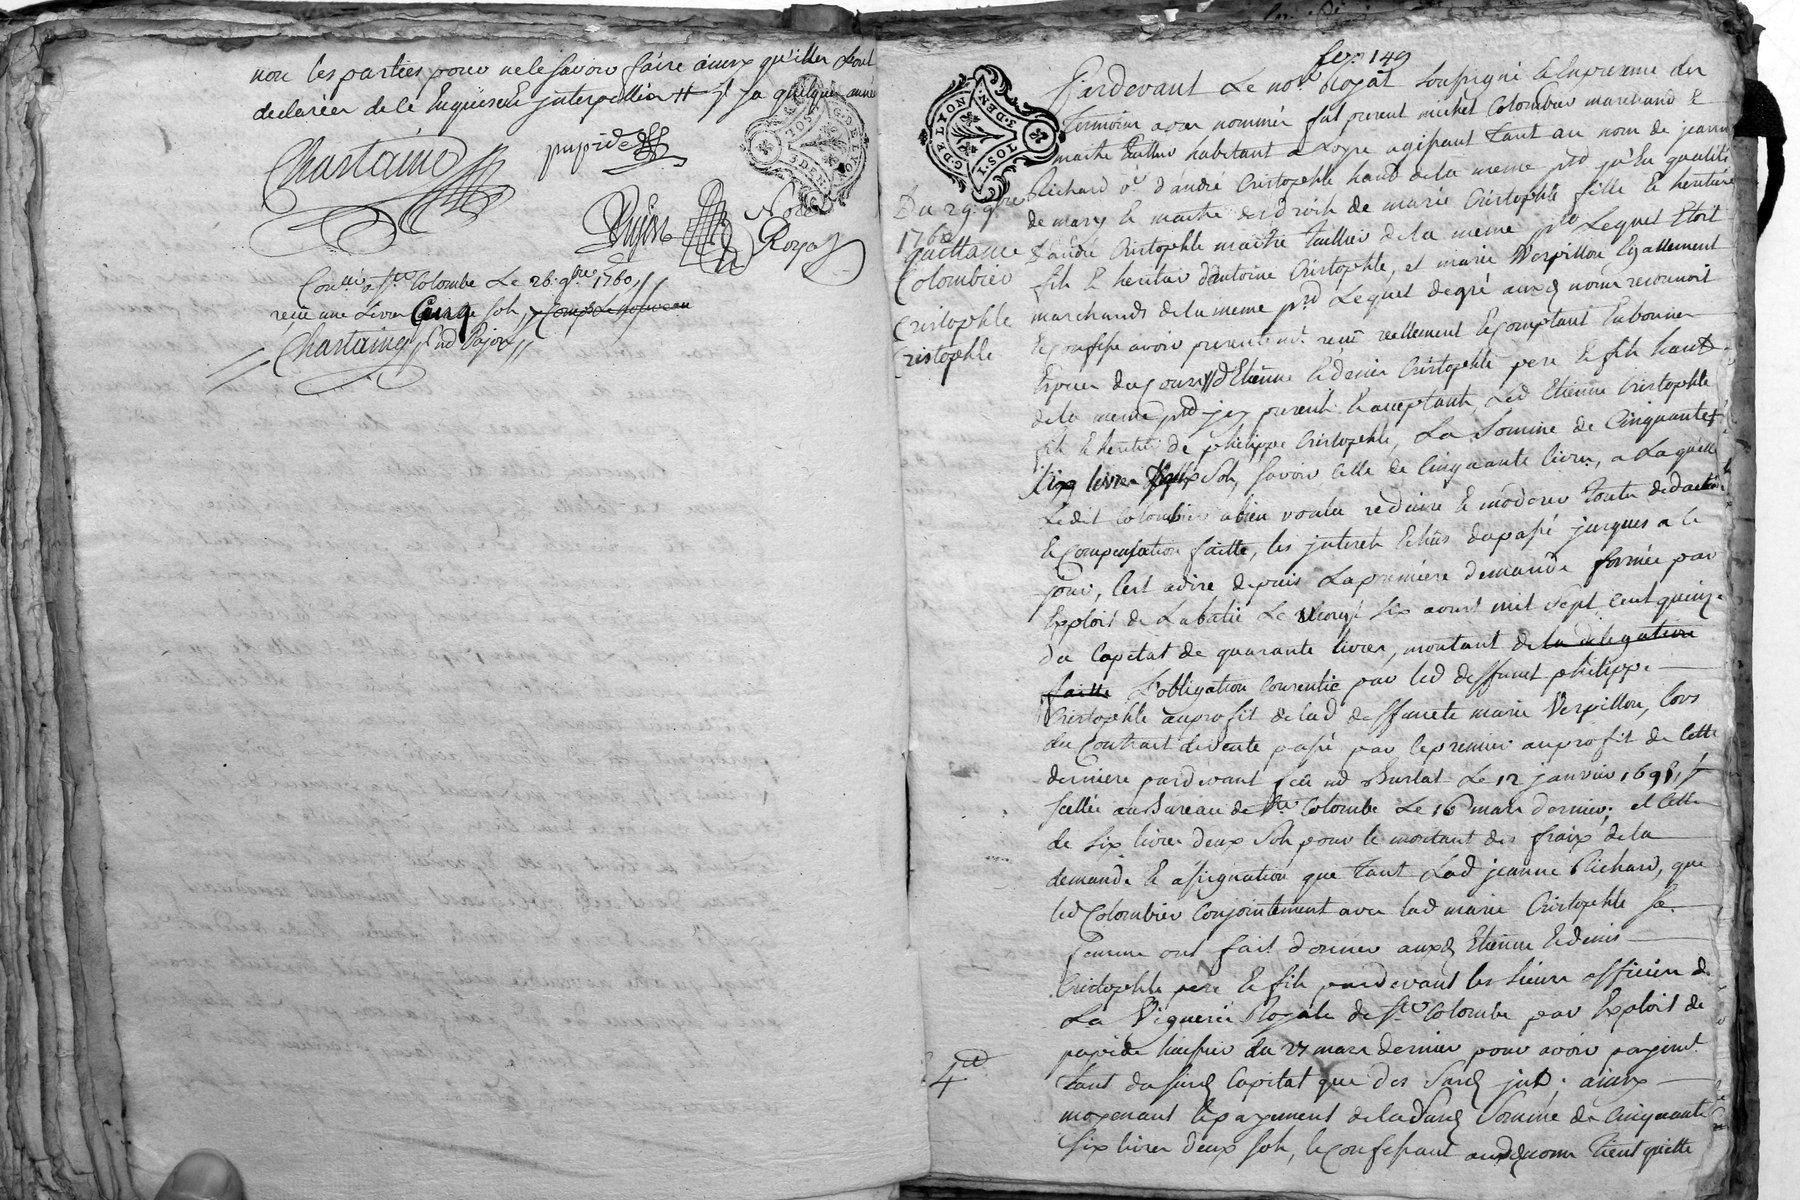 non les parties pour ne le savoir faire ainsy qu'elles ont
declarées de ce Enquises et interpellées # il ya quelques années
Chastaing
pupide
Pujon
Nore
Royal
Con.llé a Ste Colombe Le 26. 9bre 1760
reçu une Livre Cinq sols
Chastaing
G. DE LYON
TOSI
3. DEN.
fey. 149
Du 29. 9bre
1760
quittance
Colombier
a
Cristophle
Cristophle
Pardevant Le nore Royal soussigné Et En presence des
Temoins apres nommés fut present michel Colombier marchand et
maitre Tailleur habitant a Loyre agissant tant au nom de jeanne
Richard ve d'andré Cristophle habte de la meme psse qu'En qualité
de mary Et maitre des droits de marie Cristophle fille Et heritiere
d'andre Cristophle maitre Taillier de la meme psse Lequel Etoit
fils Et heritier d'antoine Cristophle, et marie Verpillon Egallement
marchands de la meme psse Lequel de gré auxd noms reconnoit
Et Confesse avoir presentemt reçu reellement Et Comptant En bonnes
Especes du Cours d'Etienne Et denis Cristophle pere Et fils habts
de la meme psse jcy presents Et acceptants, Led Etienne Cristophle
fils Et heritier de philippe Cristophle, La Somme de Cinquante
six livres deux Sols, savoir Celle de Cinquante livres, a Laquelle
Ledit Colombier a bien voulu reduire Et moderer toutes deductions
Et Compensation faitte, les jnterets Echûs du passé jusques a Ce
jour, C'est adire depuis La premiere demande formée par
Exploit de Labatie Le vingt six aoust mil sept Cent quinze
du Capital de quarante livres, montant de la delegation
faitte L'obligation Consentie par led deffunct philippe
Cristophle au profit de lad deffuncte marie Verpillon, Lors
du Contract de vente passé par le premier au profit de Cette
derniere pardevant feu md Burlat Le 12 janvier 1698
scellée au Bureau de Ste Colombe Le 16 mars dernier; et Celle
de six livres deux Sols pour le montant des fraix de la
demande Et assignation que tant Lad jeanne Richard, que
led Colombier Conjointement avec lad marie Cristophle sa
femme ont fait donner auxd Etienne Et denis
Cristophle pere Et fils pardevant les sieurs officiers de
La Viguerie Royale de Ste Colombe par Exploit de
pupide huissier du 27 mars dernier pour avoir payemt
tant du susd Capital que des Susd jnts; ainsy
moyenant Le payement de la Susd Somme de Cinquante
six livres deux Sols, le Confessant auxd noms tient quitte